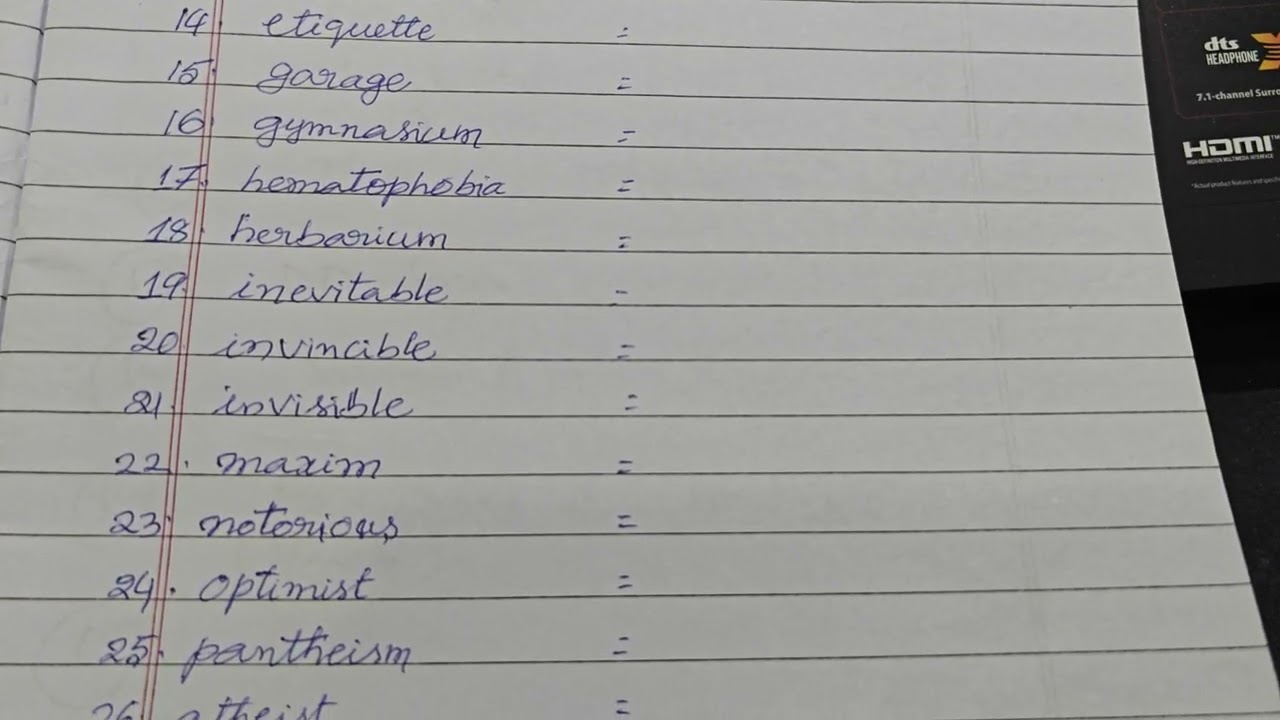 14 etiquette =
15. garage =
16. gymnasium =
17. hematophobia =
18. herbarium =
19. inevitable =
20. invincible =
21. invisible =
22. maxim =
23. notorious =
24. optimist =
25. pantheism =
26. atheist =
dts
HEADPHONE X
7.1-channel Surro
HDMI™
HIGH-DEFINITION MULTIMEDIA INTERFACE
*Actual product features and specific